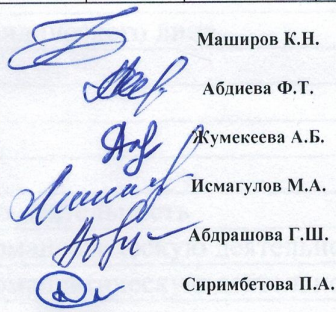 Маширов К.Н.
Абдиева Ф.Т.
Жумекеева А.Б.
Исмагулов М.А.
Абдрашова Г.Ш.
Сиримбетова П.А.